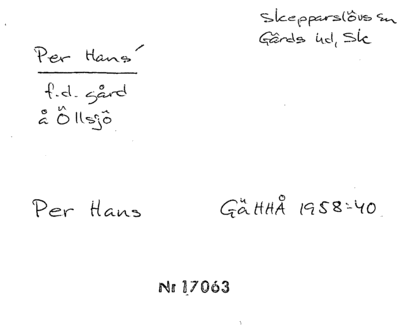 Skepparslövs sn
Gärds hd, Sk
Per Hans'
f.d. gård
å Öllsjö
Per Hans GäHHÅ 1958:40
Nr 17063